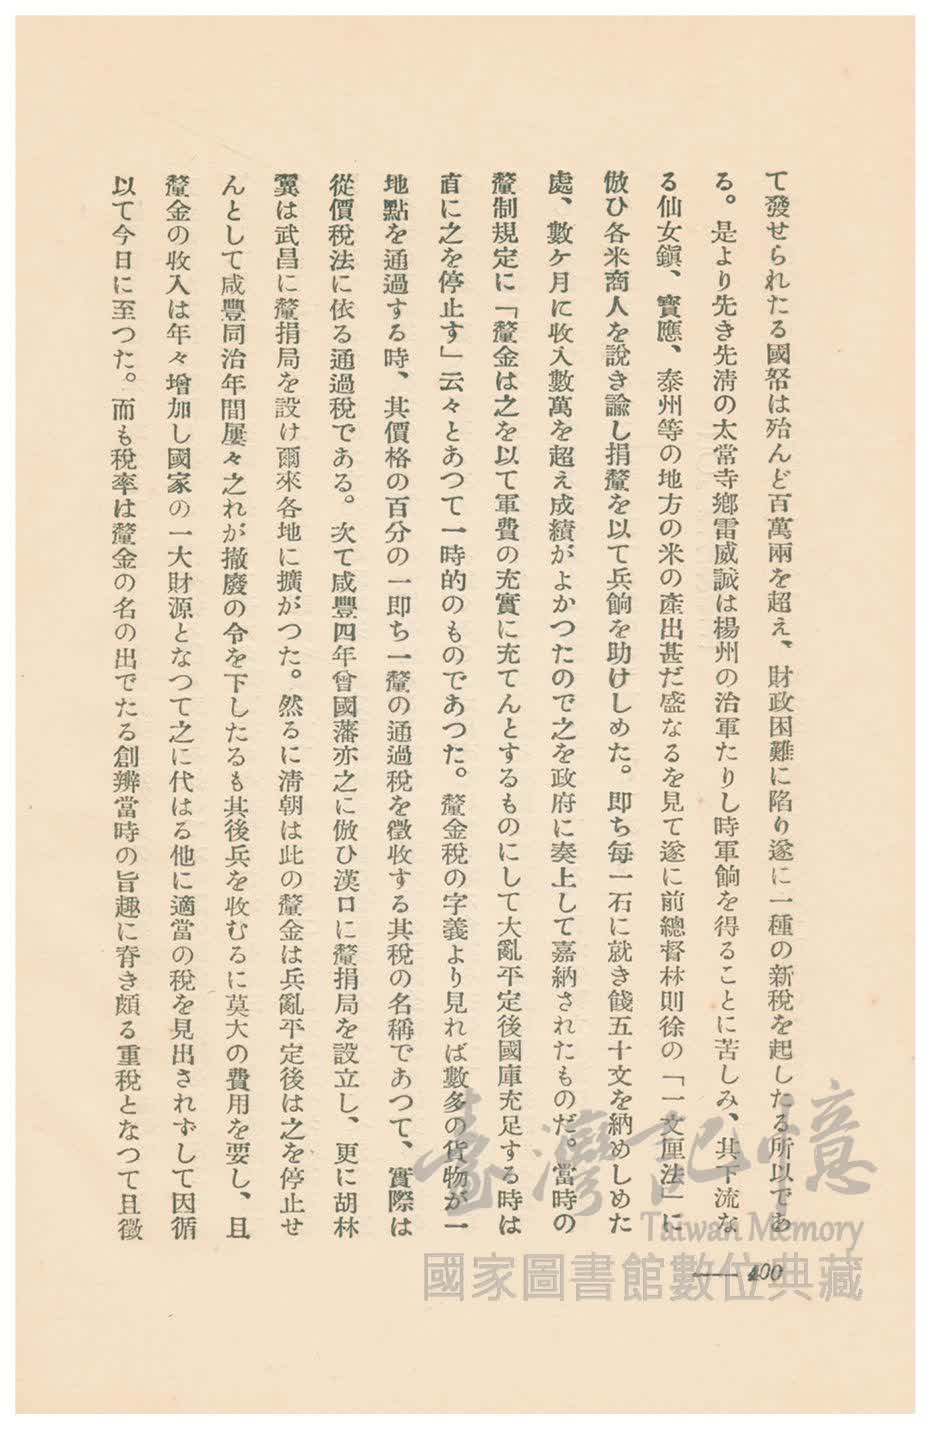 て發せられたる國帑は殆んど百萬兩を超え、財政困難に陷り遂に一種の新稅を起したる所以であ
る。是より先き先淸の太常寺鄕雷威誠は楊州の治軍たりし時軍餉を得ることに苦しみ、其下流な
る仙女鎭、寶應、泰州等の地方の米の產出甚だ盛なるを見て遂に前總督林則徐の「一文厘法」に
倣ひ各米商人を說き諭し捐釐を以て兵餉を助けしめた。卽ち每一石に就き錢五十文を納めしめた
處、數ケ月に收入數萬を超え成績がよかつたので之を政府に奏上して嘉納されたものだ。當時の
釐制規定に「釐金は之を以て軍費の充實に充てんとするものにして大亂平定後國庫充足する時は
直に之を停止す」云々とあつて一時的のものであつた。釐金稅の字義より見れば數多の貨物が一
地點を通過する時、其價格の百分の一卽ち一釐の通過稅を徵收する其稅の名稱であつて、實際は
從價稅法に依る通過稅である。次て咸豐四年曾國藩亦之に倣ひ漢口に釐捐局を設立し、更に胡林
翼は武昌に釐捐局を設け爾來各地に擴がつた。然るに淸朝は此の釐金は兵亂平定後は之を停止せ
んとして咸豐同治年間屢々之れが撤廢の令を下したるも其後兵を收むるに莫大の費用を要し、且
釐金の收入は年々增加し國家の一大財源となつて之に代はる他に適當の稅を見出されずして因循
以て今日に至つた。而も稅率は釐金の名の出でたる創辨當時の旨趣に脊き頗る重稅となつて且徵
—— 400
臺灣記憶
Taiwan Memory
國家圖書館數位典藏